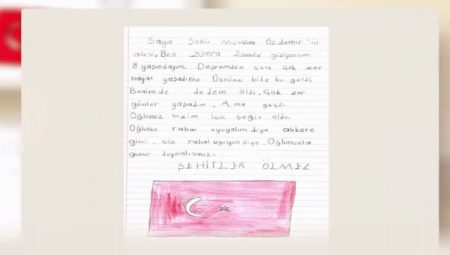 Sayın Şehit Mustafa Özdemir'in
ailesi, Ben Zümra 2.sınıfa gidiyorum
8 yaşındayım. Depremden sonra çok zor
hayat yaşadınız. Üstüne bide bu geldi.
Benimde dedem öldü. Çok zor
günler yaşadım. Ama geçti.
Oğlunuz bizim için şehit oldu.
Oğlunuz rahat uyuyalım diye askere
gitti. siz rahat uyuyun diye. Oğlunuzla
gurur duymalısınız.
ŞEHİTLER ÖLMEZ